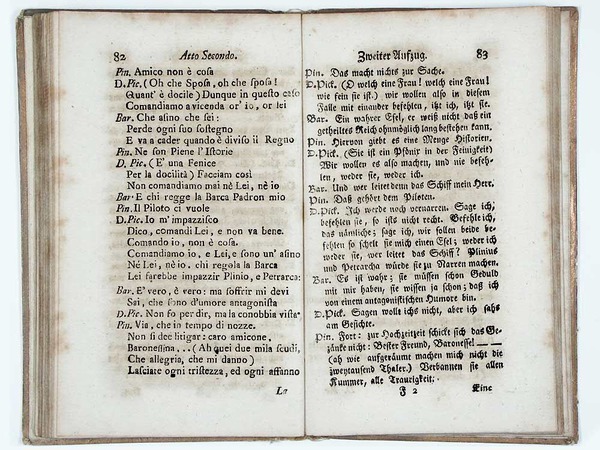 82 Atto Secondo.
Pin. Amico non è cosa
D. Pic. (Oh che Sposa, oh che sposa!
Quant' è docile) Dunque in questo caso
Comandiamo a vicenda or' io, or lei
Bar. Che asino che sei:
Perde ogni suo sostegno
E va a cader quando è diviso il Regno
Pin. Ne son Piene l'Istorie
D. Pic. (E' una Fenice
Per la docilità) Facciam così
Non comandiamo mai nè Lei, nè io
Bar. E chi regge la Barca Padron mio
Pin. Il Piloto ci vuole
D. Pic. Io m' impazzisco
Dico, comandi Lei, e non va bene.
Comando io, non è cosa.
Comandiamo io, e Lei, e sono un' asino
Nè Lei, nè io. chi regola la Barca
Lei farebbe impazzir Plinio, e Petrarca:
Bar. E' vero, è vero: ma soffrir mi devi
Sai, che sono d'umore antagonista
D. Pic. Non fo per dir, ma la conobbia vista
Pin. Via, che in tempo di nozze.
Non si dee litigar: caro amicone,
Baronessina... (Ah quei due mila scudi,
Che allegria, che mi danno)
Lasciate ogni tristezza, ed ogni affanno
La
Zweiter Aufzug. 83
Pin. Das macht nichts zur Sache.
D. Pick. (O welch eine Frau! welch eine Frau!
wie fein sie ist.) wir wollen also in diesem
Falle mit einander befehlen, itzt ich, itzt sie.
Bar. Ein wahrer Esel, er weiß nicht daß ein
getheiltes Reich ohnmöglich lang bestehen kann.
Pin. Hiervon giebt es eine Menge Historien.
D. Pick. (Sie ist ein Phönix in der Feinigkeit)
Wir wollen es also machen, und nie befeh-
len, weder sie, weder ich.
Bar. Und wer leitet denn das Schiff mein Herr.
Pin. Daß gehört dem Piloten.
D. Pick. Ich werde noch vernarren. Sage ich,
befehlen sie, so ists nicht recht. Befehle ich,
das nämliche; sage ich, wir sollen beide be-
fehlen so schelt sie mich einen Esel; weder ich
weder sie, wer leitet das Schiff? Plinius
und Petrarcha würde sie zu Narren machen.
Bar. Es ist wahr; sie müssen schon Geduld
mit mir haben, sie wissen ja schon; daß ich
von einem antagonistischen Humore bin.
D. Pick. Sagen wollt ichs nicht, aber ich sahs
am Gesichte.
Pin. Fort: zur Hochzeitzeit schickt sich das Ge-
zänke nicht: Bester Freund, Baronessel — —
(ah wie aufgeräumt machen mich nicht die
zweytausend Thaler.) Verbannen sie allen
Kummer, alle Traurigkeit.
F 2 Eine